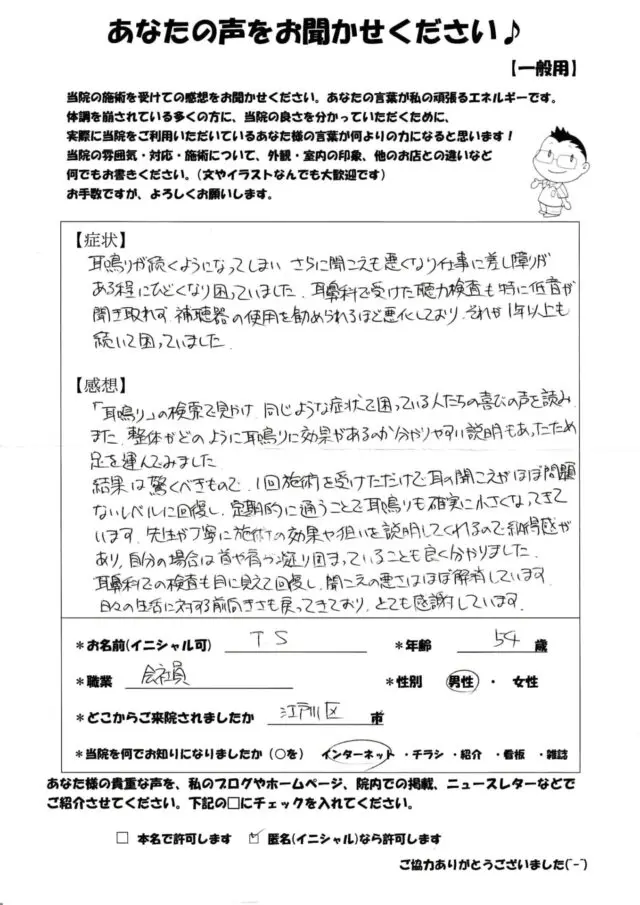 あなたの声をお聞かせください♪
【一般用】
当院の施術を受けての感想をお聞かせください。あなたの言葉が私の頑張るエネルギーです。
体調を崩されている多くの方に、当院の良さを分かっていただくために、
実際に当院をご利用いただいているあなた様の言葉が何よりの力になると思います！
当院の雰囲気・対応・施術について、外観・室内の印象、他のお店との違いなど
何でもお書きください。（文やイラストなんでも大歓迎です）
お手数ですが、よろしくお願いします。
【症状】
耳鳴りが続くようになってしまい さらに聞こえも悪くなり仕事に差し障りが
ある程にひどくなり困っていました。耳鼻科で受けた聴力検査も特に低音が
聞き取れず、補聴器の使用を勧められるほど悪化しており、それが1年以上も
続いて困っていました。
【感想】
「耳鳴り」の検索で見かけ、同じような症状で困っている人たちの喜びの声を読み
また、整体がどのように耳鳴りに効果があるのか分かりやすい説明もあったため
足を運んでみました。
結果は驚くべきもので、1回施術を受けただけで耳の聞こえがほぼ問題
ないレベルに回復し、定期的に通うことで耳鳴りも確実に小さくなってきて
います。先生が丁寧に施術の効果や狙いを説明してくれるので納得感が
あり、自分の場合は首や肩が凝り固まっていることも良く分かりました。
耳鼻科での検査も目に見えて回復し、聞こえの悪さはほぼ解消しています。
日々の生活に対する前向きさも戻ってきており、とても感謝しています。
＊お名前(イニシャル可) TS ＊年齢 54 歳
＊職業 会社員 ＊性別 男性 ・ 女性
＊どこからご来院されましたか 江戸川区 市
＊当院を何でお知りになりましたか（○を） インターネット ・チラシ ・紹介 ・看板 ・雑誌
あなた様の貴重な声を、私のブログやホームページ、院内での掲載、ニュースレターなどで
ご紹介させてください。下記の□にチェックを入れてください。
□ 本名で許可します ☑ 匿名(イニシャル)なら許可します
ご協力ありがとうございました(^-^)